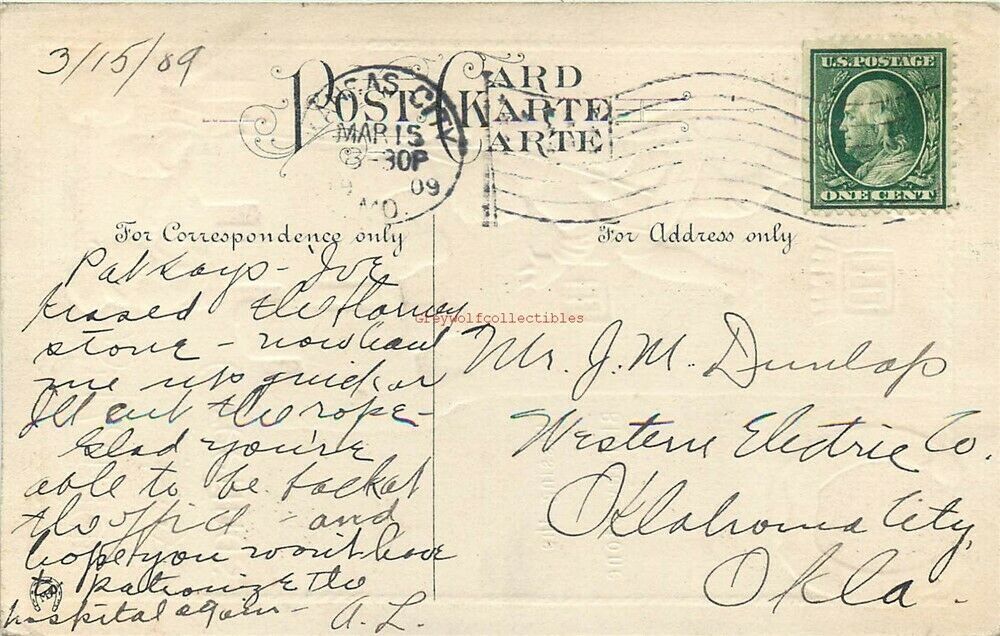 3/15/09
POST CARD
POSTKARTE
CARTE
KANSAS CITY
MAR 15
8-30P
1909
MO.
U.S. POSTAGE
ONE CENT
For Correspondence only
For Address only
Pat says - "I've
kissed the Blarney
stone - now haul
me up quick or
I'll cut the rope -
Glad you're
able to be back at
the office - and
hope you won't have
to patronize the
hospital again -
A. L.
Greywolfcollectibles
Mr. J. M. Dunlap
Western Electric Co.
Oklahoma City,
Okla.